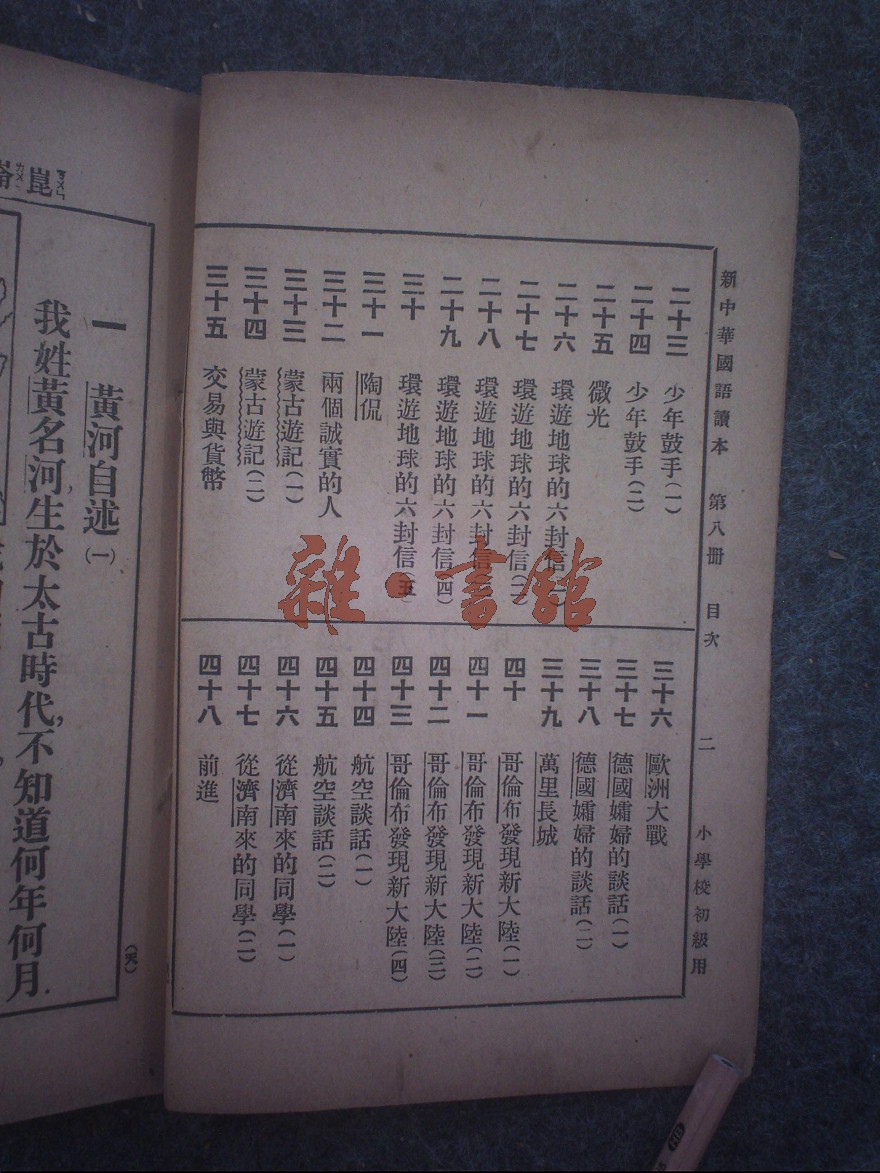 新中華國語讀本 第八冊 目次 二 小學校初級用
二十三 少年鼓手(一)
二十四 少年鼓手(二)
二十五 微光
二十六 環遊地球的六封信(一)
二十七 環遊地球的六封信(二)
二十八 環遊地球的六封信
二十九 環遊地球的六封信(四)
三十 環遊地球的六封信(五)
三十一 陶侃
三十二 兩個誠實的人
三十三 蒙古遊記(一)
三十四 蒙古遊記(二)
三十五 交易與貨幣
三十六 歐洲大戰
三十七 德國孀婦的談話(一)
三十八 德國孀婦的談話(二)
三十九 萬里長城
四十 哥倫布發現新大陸(一)
四十一 哥倫布發現新大陸(二)
四十二 哥倫布發現新大陸(三)
四十三 哥倫布發現新大陸(四)
四十四 航空談話(一)
四十五 航空談話(二)
四十六 從濟南來的同學(一)
四十七 從濟南來的同學(二)
四十八 前進
雜·書館
崑
一 黃河自述(一)
我姓黃名河,生於太古時代,不知道何年何月.